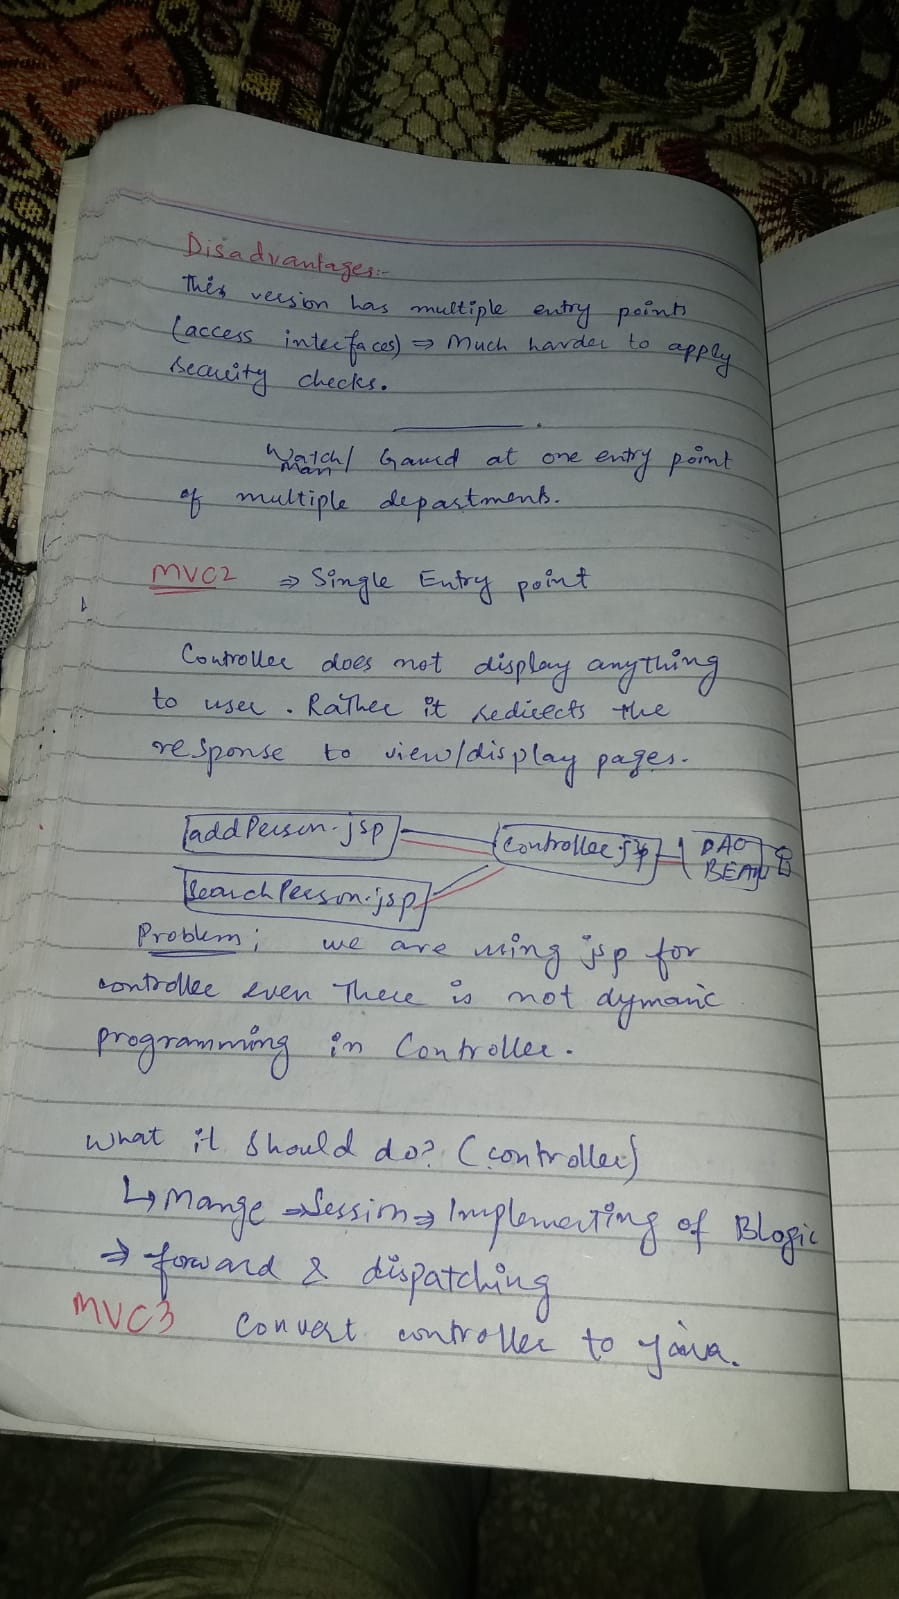 Disadvantages:-
This version has multiple entry points
(access interfaces) ⇒ Much harder to apply
security checks.
Watch/ Gaurd at one entry point
man
of multiple departments.
MVC2 ⇒ Single Entry point
Controller does not display anything
to user. Rather it redirects the
response to view/display pages.
addPerson.jsp
Controller.jsp
DAO
BEAN
SearchPerson.jsp
Problem; we are using jsp for
controller even There is not dymanic
programming in Controller.
What it should do? (controller)
↳ Mange ⇒ Session ⇒ Implementing of Blogic
⇒ forward & dispatching
MVC3 Convert controller to java.